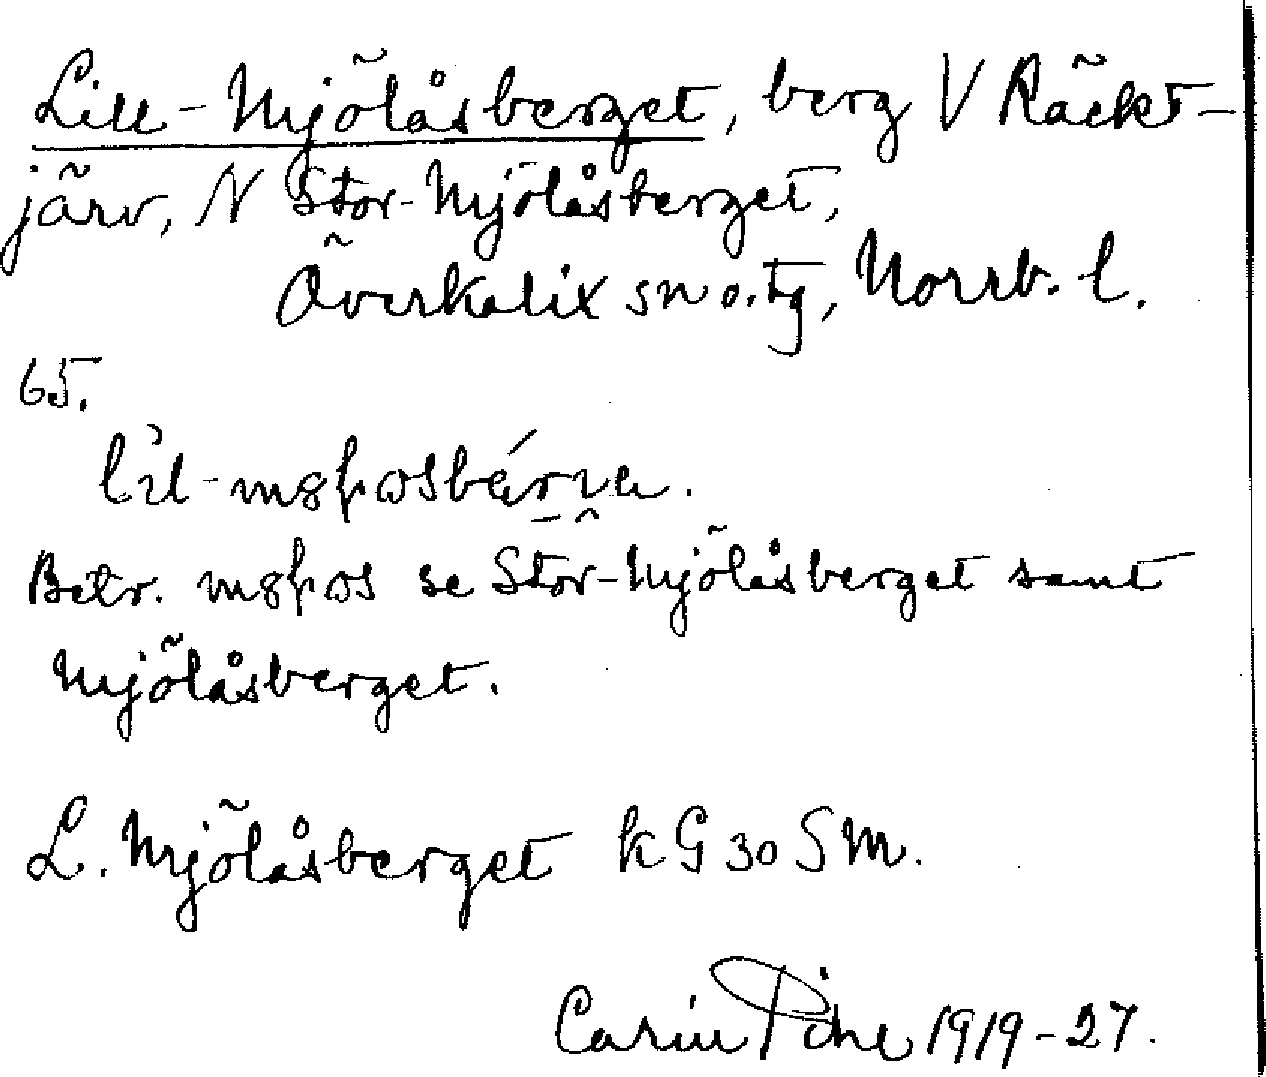 Lill-Mjölåsberget, berg V Räckt-
järv, N Stor-Mjölåsberget,
Överkalix sn o. tg, Norrb. l.
65.
Betr. se Stor-Mjölåsberget samt
Mjölåsberget.
L. Mjölåsberget kG 30 SM.
Carin Pihl 1919-27.